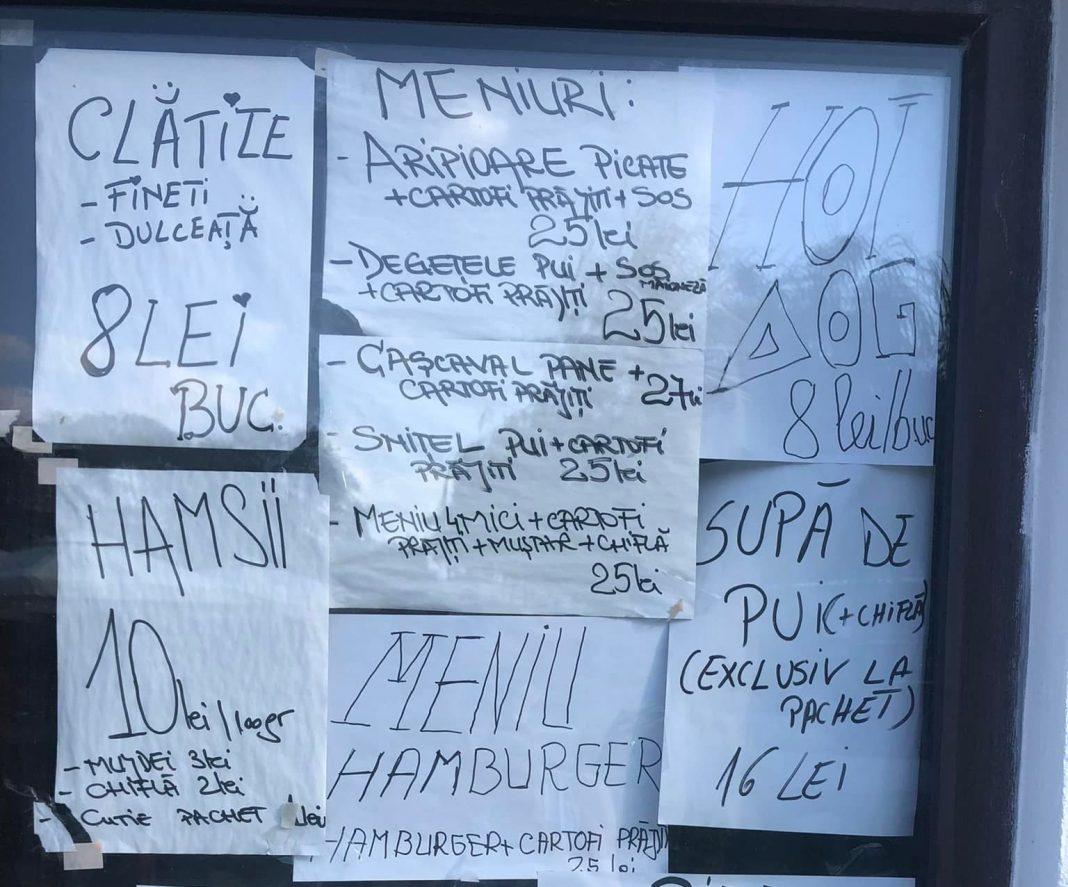 CLĂTITE
- FINETI
- DULCEAȚĂ
8 LEI
BUC.
MENIURI:
- ARIPIOARE PICATE
+CARTOFI PRĂJIȚI+SOS
25 lei
- DEGEȚELE PUI + SOS
MAIONEZĂ
+CARTOFI PRĂJIȚI
25 lei
- CAȘCAVAL PANE +
CARTOFI PRĂJIȚI 27lei
- SNIȚEL PUI+CARTOFI
PRĂJIȚI 25lei
- MENIU 4 MICI + CARTOFI
PRĂJIȚI + MUȘTAR + CHIFLĂ
25lei
HOT
DOG
8 lei/buc
HAMSII
10 lei/100gr
- MUJDEI 3lei
- CHIFLĂ 2lei
- CUTIE PACHET lei
MENIU
HAMBURGER
HAMBURGER+ CARTOFI PRĂJIȚI
25 lei
SUPĂ DE
PUI (+ CHIFLĂ)
(EXCLUSIV LA
PACHET)
16 LEI